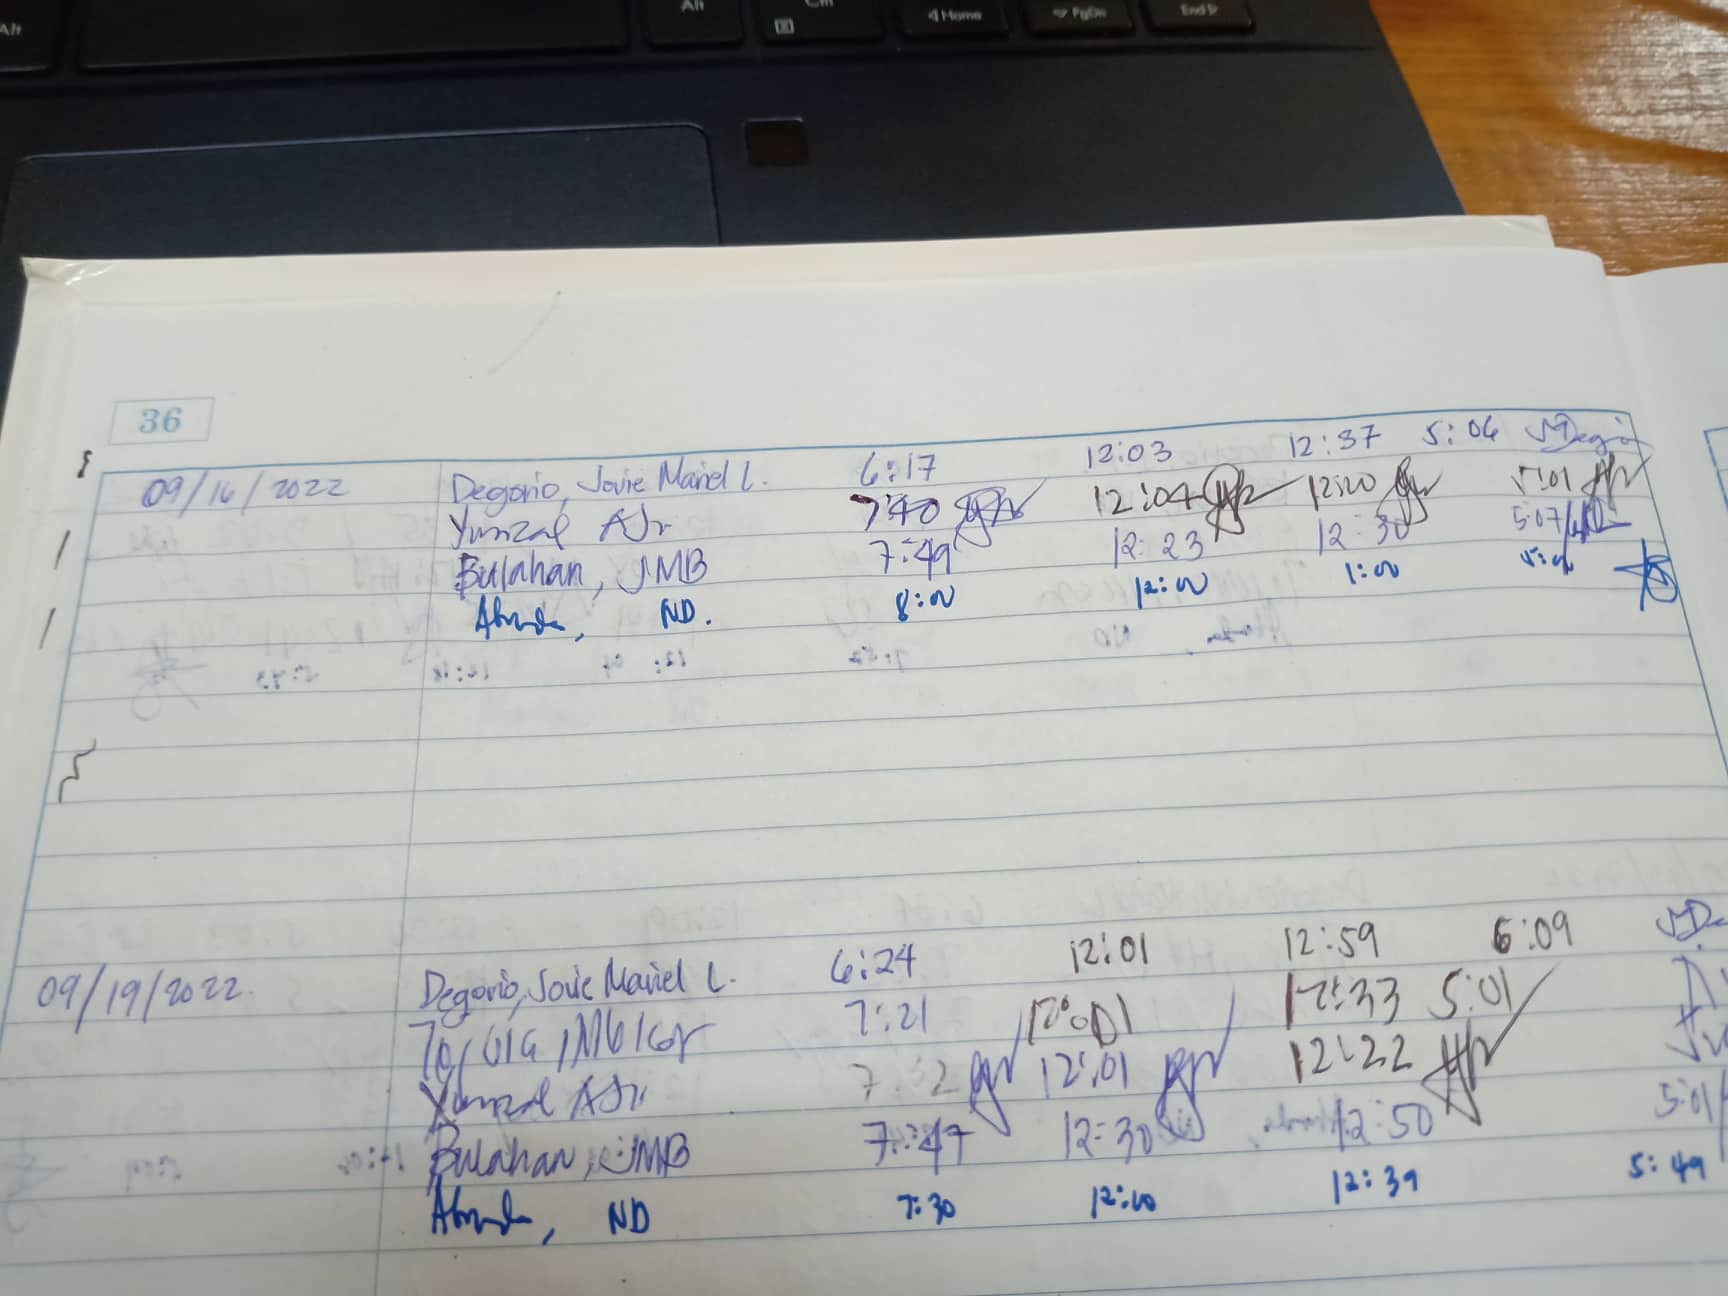 Alt
Alt
Home
PgDn
End
36
09/16/2022 Degorio, Jovie Mariel L. 6:17 12:03 12:37 5:06
Yunzal AJr 7:40 12:04 12:20 5:01
Bulahan, JMB 7:49 12:23 12:30 5:07
ND. 8:00 12:00 1:00
09/19/2022 Degorio, Jovie Mariel L. 6:24 12:01 12:59 6:09
7:21 12:01 12:33 5:01
Yunzal AJr. 7:32 12:01 12:22
Bulahan, JMB 7:47 12:30 12:50 5:01
ND 7:30 12:10 12:39 5:49